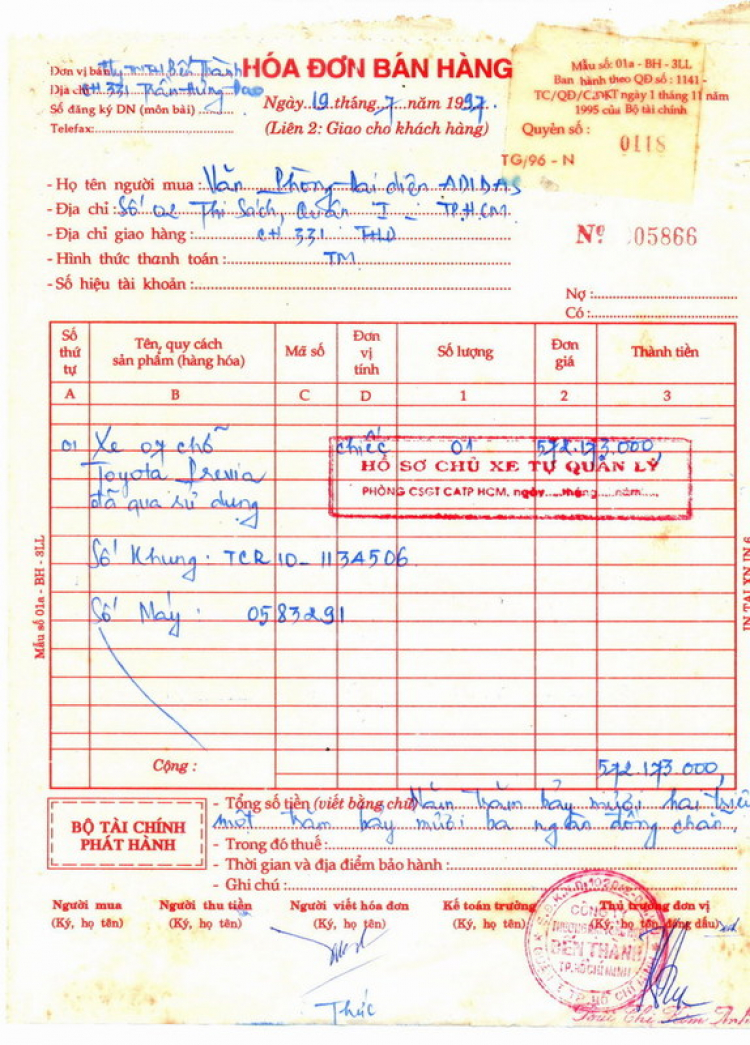 HÓA ĐƠN BÁN HÀNG
Đơn vị bán: Cty TNTH Bến Thành
Địa chỉ: CH 331 Trần Hưng Đạo
Số đăng ký DN (môn bài)
Telefax:
Ngày 19 tháng 7 năm 1997.
(Liên 2: Giao cho khách hàng)
Mẫu số: 01a - BH - 3LL
Ban hành theo QĐ số: 1141 -
TC/QĐ/CĐKT ngày 1 tháng 11 năm
1995 của Bộ tài chính
Quyển số: 0118
TG/96 - N
- Họ tên người mua: Văn Phòng Đại diện ADIDAS
- Địa chỉ: Số 02 Thi Sách, Quận I - TP.H.CM
- Địa chỉ giao hàng: CH 331 THD
Nº 05866
- Hình thức thanh toán: TM
- Số hiệu tài khoản:
Nợ:
Có:
Số thứ tự Tên, quy cách sản phẩm (hàng hóa) Mã số Đơn vị tính Số lượng Đơn giá Thành tiền
A B C D 1 2 3
01 Xe 07 chỗ chiếc 01 572.173.000,
Toyota Previa
đã qua sử dụng
HỒ SƠ CHỦ XE TỰ QUẢN LÝ
PHÒNG CSGT CATP HCM, ngày.....tháng.....năm.....
Số Khung: TCR 10 - 1134506
Số Máy: 0583291
Mẫu số 01a - BH - 3LL
Cộng: 572.173.000,
- Tổng số tiền (viết bằng chữ) Năm trăm bảy mươi hai triệu
một trăm bảy mươi ba ngàn đồng chẵn.
BỘ TÀI CHÍNH
PHÁT HÀNH
- Trong đó thuế:
- Thời gian và địa điểm bảo hành:
- Ghi chú:
Người mua Người thu tiền Người viết hóa đơn Kế toán trưởng Thủ trưởng đơn vị
(Ký, họ tên) (Ký, họ tên) (Ký, họ tên) (Ký, họ tên) (Ký, họ tên đóng dấu)
CÔNG TY
BẾN THÀNH
TP. HỒ CHÍ MINH
Thức